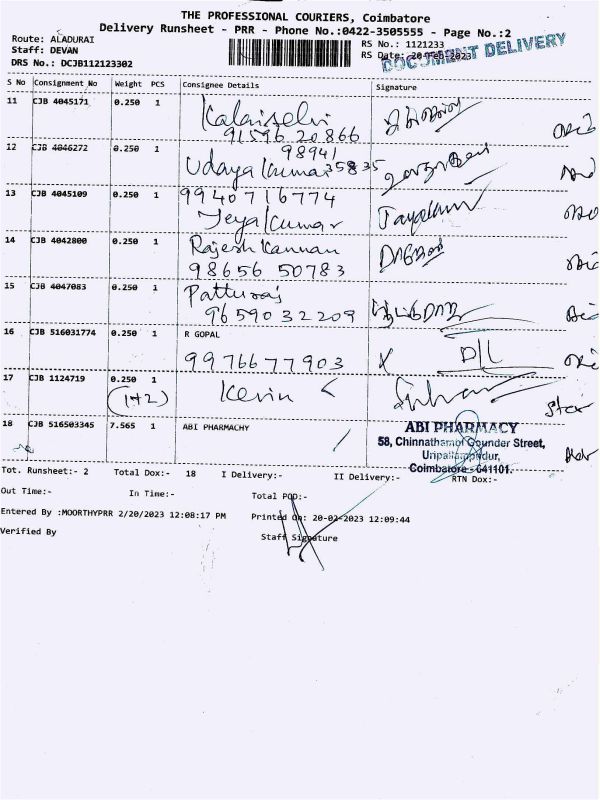 THE PROFESSIONAL COURIERS, Coimbatore
Delivery Runsheet - PRR - Phone No.:0422-3505555 - Page No.:2
Route: ALADURAI
Staff: DEVAN
DRS No.: DCJB112123302
RS No.: 1121233
RS Date: 20-Feb-2023
DOCUMENT DELIVERY
S No Consignment No Weight PCS Consignee Details Signature
11 CJB 4045171 0.250 1 Kalaiselvi
91596 20866
12 CJB 4046272 0.250 1 Udaya Kumar 98941
35835
13 CJB 4045109 0.250 1 9940716774
Jeya Kumar Jayakumar
14 CJB 4042800 0.250 1 Rajesh Kannan
98656 50783
15 CJB 4047083 0.250 1 Patturaj
9659032209
16 CJB 516031774 0.250 1 R GOPAL
9976677903 X D/L
17 CJB 1124719 0.250 1 Kevin
(1+2)
18 CJB 516503345 7.565 1 ABI PHARMACHY
ABI PHARMACY
58, Chinnathamoi Gounder Street,
Coimbatore - 641101.
Tot. Runsheet:- 2 Total Dox:- 18 I Delivery:- II Delivery:- RTN Dox:-
Out Time:- In Time:- Total POD:-
Entered By :MOORTHYPRR 2/20/2023 12:08:17 PM Printed On: 20-02-2023 12:09:44
Verified By Staff Signature